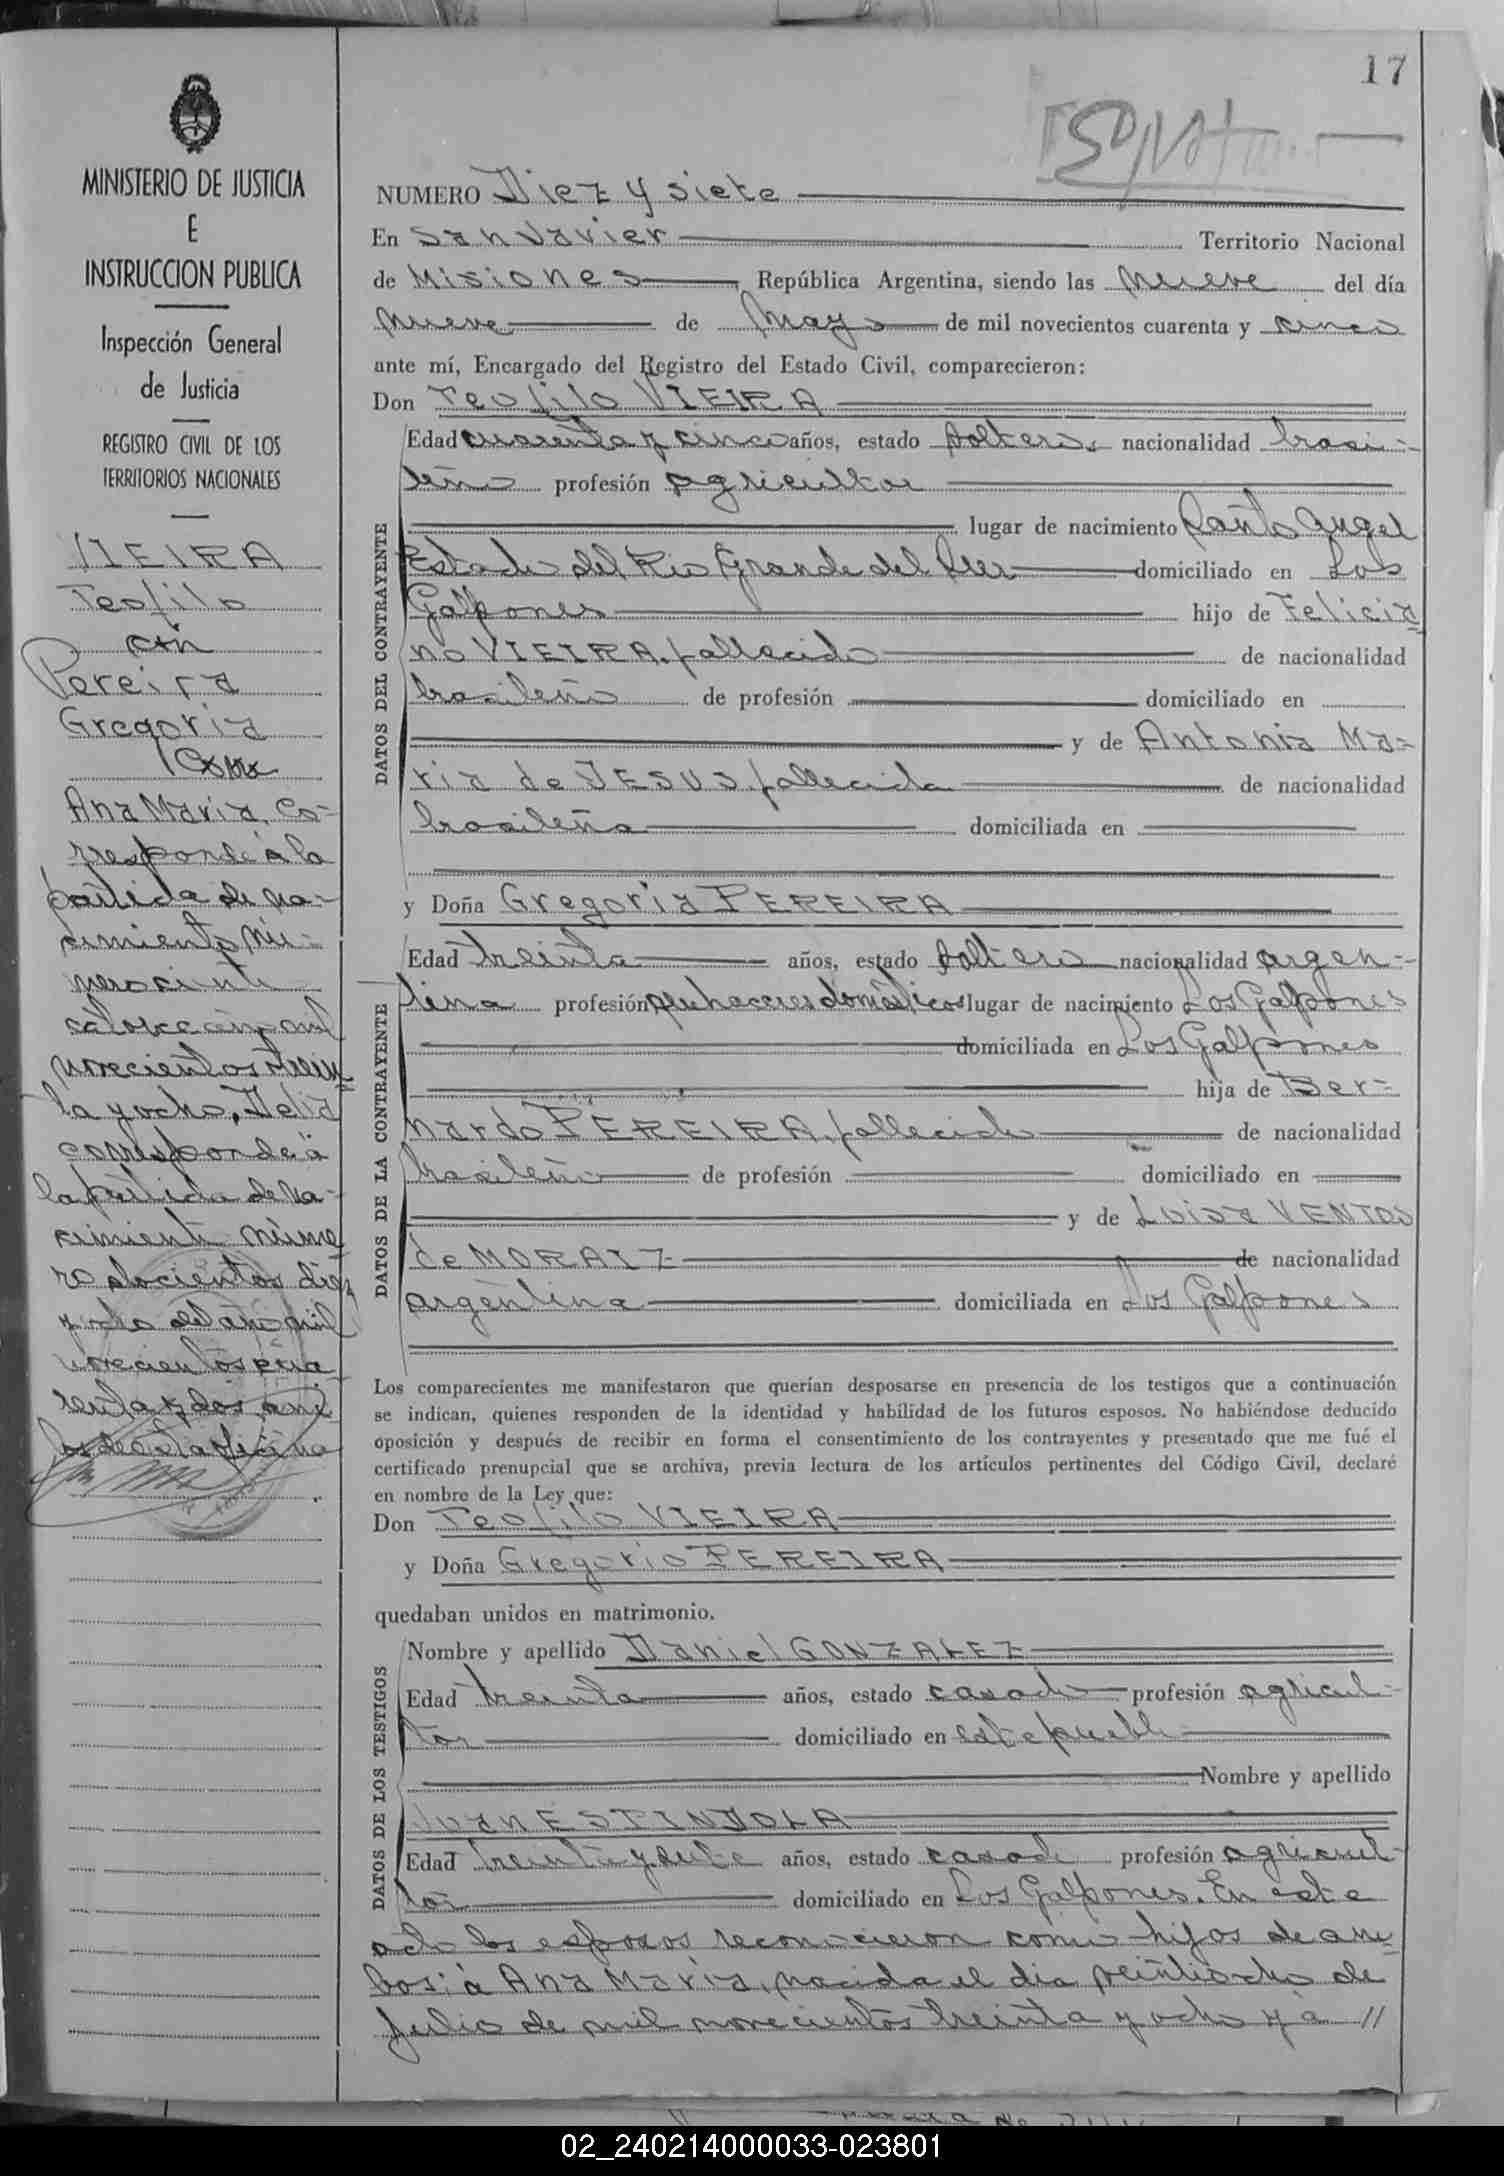 17
MINISTERIO DE JUSTICIA
E
INSTRUCCION PUBLICA
Inspección General
de Justicia
REGISTRO CIVIL DE LOS
TERRITORIOS NACIONALES
VIEIRA
Teofilo
con
Pereira
Gregoria
Ana Maria, co-
rresponde á la
partida de na-
cimiento nú-
mero ciento
catorce año mil
novecientos trein
ta y ocho, Delia
corresponde á
la partida de na-
cimiento núme
ro doscientos diez
y ocho del año mil
novecientos cua
renta y dos, am
bos de esta oficina
NUMERO Diez y siete
En San Javier Territorio Nacional
de Misiones República Argentina, siendo las nueve del día
nueve de Mayo de mil novecientos cuarenta y cinco
ante mí, Encargado del Registro del Estado Civil, comparecieron:
Don Teofilo VIEIRA
DATOS DEL CONTRAYENTE
Edad cuarenta y cinco años, estado soltero, nacionalidad brasi-
leño profesión agricultor
lugar de nacimiento Santo Angel
Estado del Rio Grande del Sur domiciliado en Los
Galpones hijo de Felicia
no VIEIRA, fallecido de nacionalidad
brasileño de profesión domiciliado en
y de Antonia Ma=
ria de JESUS, fallecida de nacionalidad
brasileña domiciliada en
y Doña Gregoria PEREIRA
DATOS DE LA CONTRAYENTE
Edad treinta años, estado soltera nacionalidad argen-
tina profesión quehaceres domésticos lugar de nacimiento Los Galpones
domiciliada en Los Galpones
hija de Ber=
nardo PEREIRA, fallecido de nacionalidad
brasileño de profesión domiciliado en
y de Luisa VENTOS
de MORAIZ de nacionalidad
argentina domiciliada en Los Galpones
Los comparecientes me manifestaron que querían desposarse en presencia de los testigos que a continuación
se indican, quienes responden de la identidad y habilidad de los futuros esposos. No habiéndose deducido
oposición y después de recibir en forma el consentimiento de los contrayentes y presentado que me fué el
certificado prenupcial que se archiva, previa lectura de los artículos pertinentes del Código Civil, declaré
en nombre de la Ley que:
Don Teofilo VIEIRA
y Doña Gregoria PEREIRA
quedaban unidos en matrimonio.
DATOS DE LOS TESTIGOS
Nombre y apellido Daniel GONZALEZ
Edad treinta años, estado casado profesión agricul-
tor domiciliado en este pueblo
Nombre y apellido
Juan ESTINDOLA
Edad treinta y siete años, estado casado profesión agricul-
tor domiciliado en Los Galpones. En este
acto los esposos reconocieron como hijos de am
bos: á Ana Maria, nacida el dia veintiocho de
Julio de mil novecientos treinta y ocho y á //
02_240214000033-023801